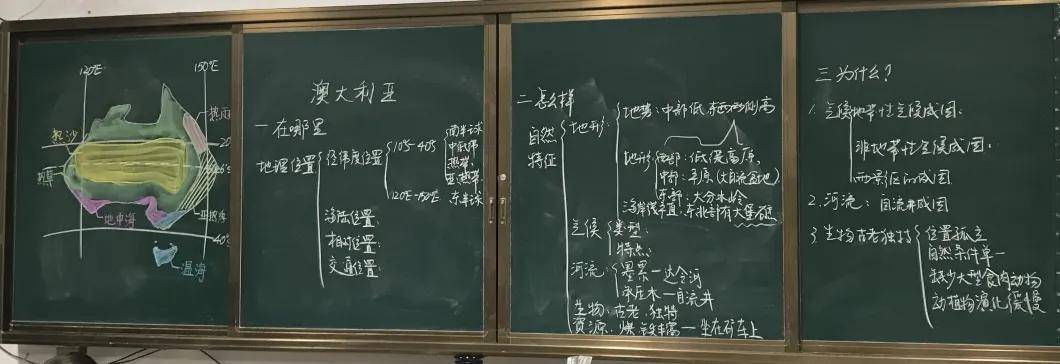 120°E
150°E
热雨
热沙
20°
热草
地中海
亚热湿
40°
温海
澳大利亚
一 在哪里
地理位置
经纬度位置
10°S-40°S
南半球
中低纬
热带
亚热带
120°E-150°E
东半球
海陆位置:
相对位置:
交通位置:
二 怎么样
自然特征
地形
地势: 中部低 东西两侧高
地形
西部: 低矮高原,
中部: 平原 (大自流盆地)
东部: 大分水岭
海岸线平直, 东北部有大堡礁
气候
类型:
特点:
河流:
墨累—达令河
承压水—自流井
生物: 古老. 独特
资源: 煤.铁丰富—坐在矿车上
三 为什么?
1. 气候地带性气候成因.
非地带性气候成因.
雨影区的成因
2. 河流: 自流井成因
3. 生物古老独特
位置孤立
自然条件单一
缺少大型食肉动物
动植物演化缓慢